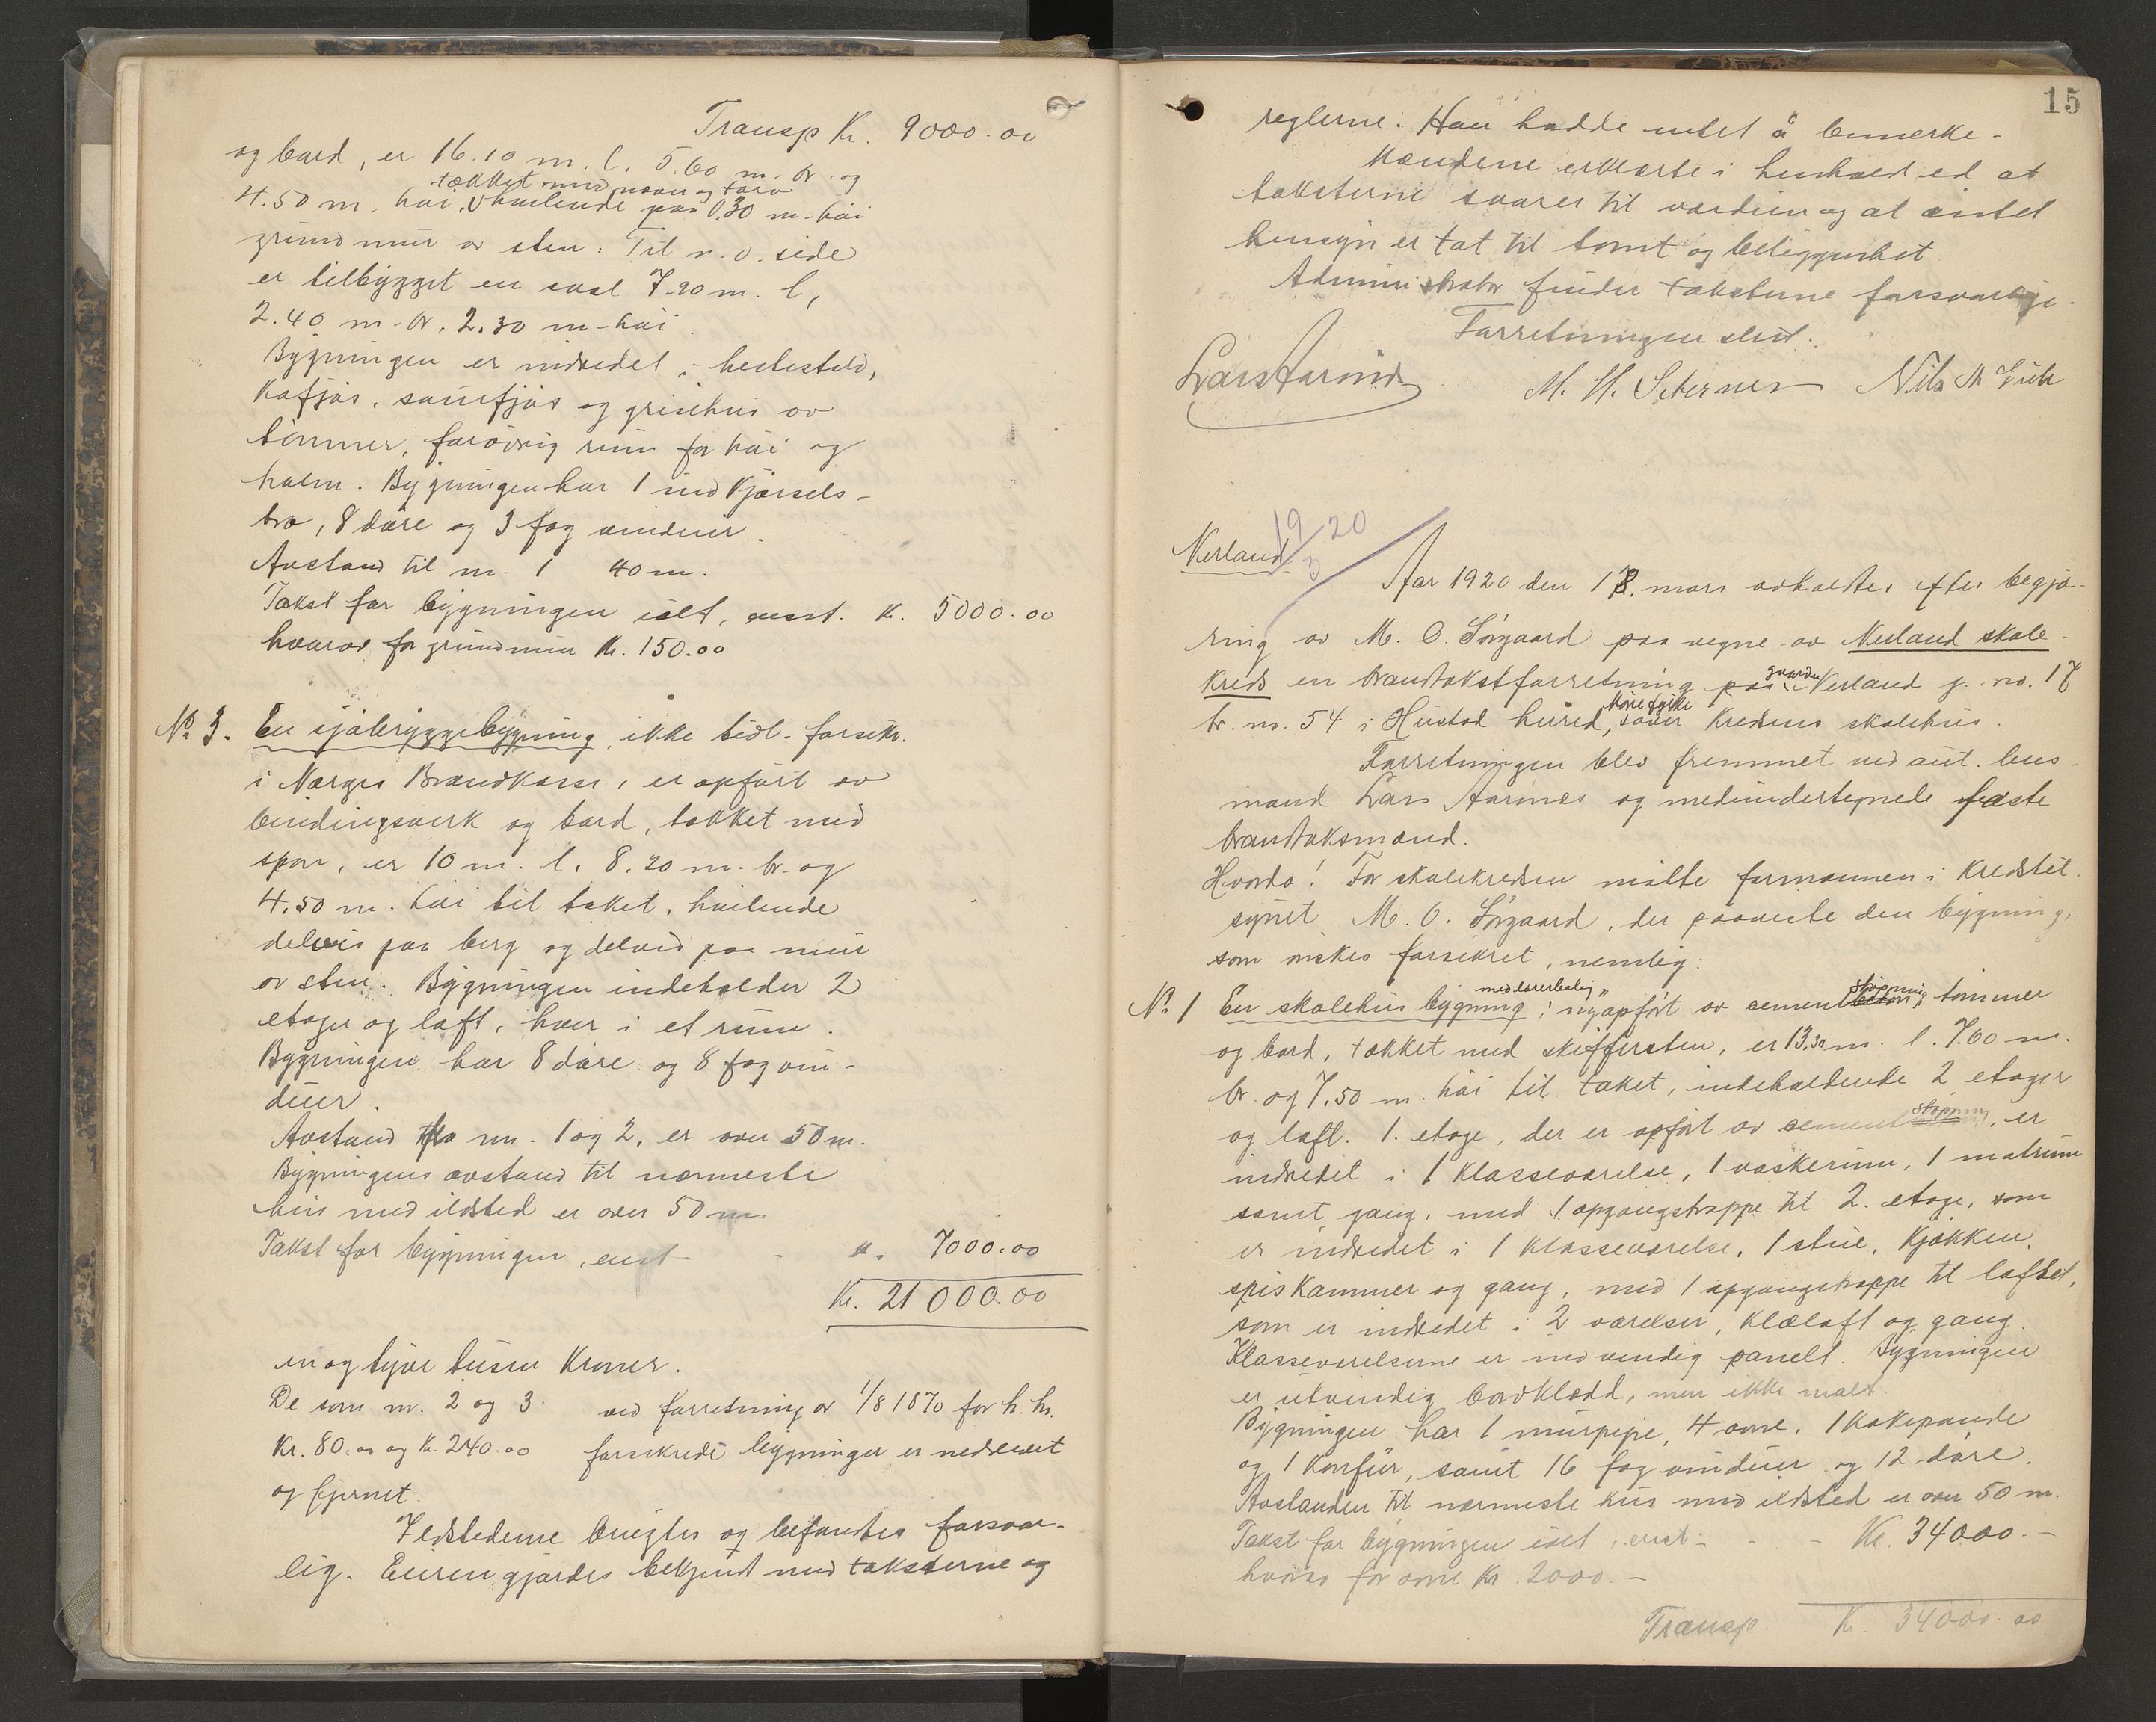 Transp Kr. 9000.00
og bord, er 16.10 m. l. 5.60 m. br. og
tækket med næver og torv
4.50 m. høi, hvilende paa 0.30 m. høi
grundmur av sten. Til n.o. side
er tilbygget en sval 7.20 m. l,
2.40 m. br. 2.30 m. høi
Bygningen er indredet i hestestald,
kofjøs, sauefjøs og grisehus av
tømmer, forøvrig rum for høi og
halm. Bygningen har 1 indkjørsels-
bro, 8 døre og 3 fag vinduer.
Avstand til nr. 1 40 m.
Takst for bygningen ialt, enst. Kr. 5000.00
hvorav for grundmur Kr. 150.00
No 3. En sjøbryggebygning, ikke tidl. forsikr.
i Norges Brandkasse, er opført av
bindingsverk og bord, tækket med
spon, er 10 m. l. 8.20 m. br. og
4.50 m. høi til taket, hvilende
delvis paa berg og delvis paa mur
av sten. Bygningen indeholder 2
etager og loft, hver i et rum.
Bygningen har 8 døre og 8 fag vin-
duer.
Avstand fra nr. 1 og 2, er over 50 m.
Bygningens avstand til nærmeste
hus med ildsted er over 50 m.
Takst for bygningen, enst - - Kr. 7000.00
Kr. 21000.00
en og tyve tusen kroner.
De som nr. 2 og 3 ved forretning av 1/8 1870 for h. hv.
Kr. 80.00 og Kr. 240.00 forsikrede bygninger er nedrevet
og fjernet.
Ildstederne besigtes og befandtes forsvar-
lig. Eieren gjordes bekjendt med taksterne og
15
reglerne. Han hadde intet å bemerke.
Mændene erklærte i henhold ed at
taksterne svarer til værdien og at intet
hensyn er tat til tomt og beliggenhet.
Administrator finder taksterne forsvarlige.
Forretningen slut.
Lars Aarnes M. H. Nils M
Nerland 19/3 20
Aar 1920 den 18. mars avholdtes efter begjæ-
ring av M. O. Sørgaard paa vegne av Nerland skole-
kreds en brandtakstforretning paa gaarden Nerland g. no. 17
Møre fylke
br. no. 54 i Hustad herred, over kredsens skolehus.
Forretningen blev fremmet ved aut. lens-
mand Lars Aarnes og medundertegnede faste
brandtaksmænd.
Hvorda! For skolekredsen møtte formannen i kredstil-
synet M. O. Sørgaard, der paaviste den bygning,
som ønskes forsikret, nemlig:
med lærerbolig støpning
No 1 En skolehusbygning, nyopført av sementbeton, tømmer
og bord, tækket med skiffersten, er 13.30 m. l. 7.60 m.
br. og 7.50 m. høi til taket, indeholdende 2 etager
og loft. 1. etage, der er opført av sementstøpning, er
indredet i 1 klasseværelse, 1 vaskerum, 1 matrum
samt gang, med 1 opgangstrappe til 2. etage, som
er indredet i 1 klasseværelse, 1 stue, kjøkken,
spiskammer og gang, med 1 opgangstrappe til loftet,
som er indredet i 2 værelser, klæloft og gang.
Klasseværelserne er indvendig panelt. Bygningen
er utvendig bordklædd, men ikke malt.
Bygningen har 1 murpipe, 4 ovne, 1 kokepande
og 1 komfur, samt 16 fag vinduer og 12 døre.
Avstanden til nærmeste hus med ildsted er over 50 m.
Takst for bygningen ialt, enst. - - Kr. 34000.-
hvorav for ovne Kr. 2000.-
Transp. Kr. 34000.00